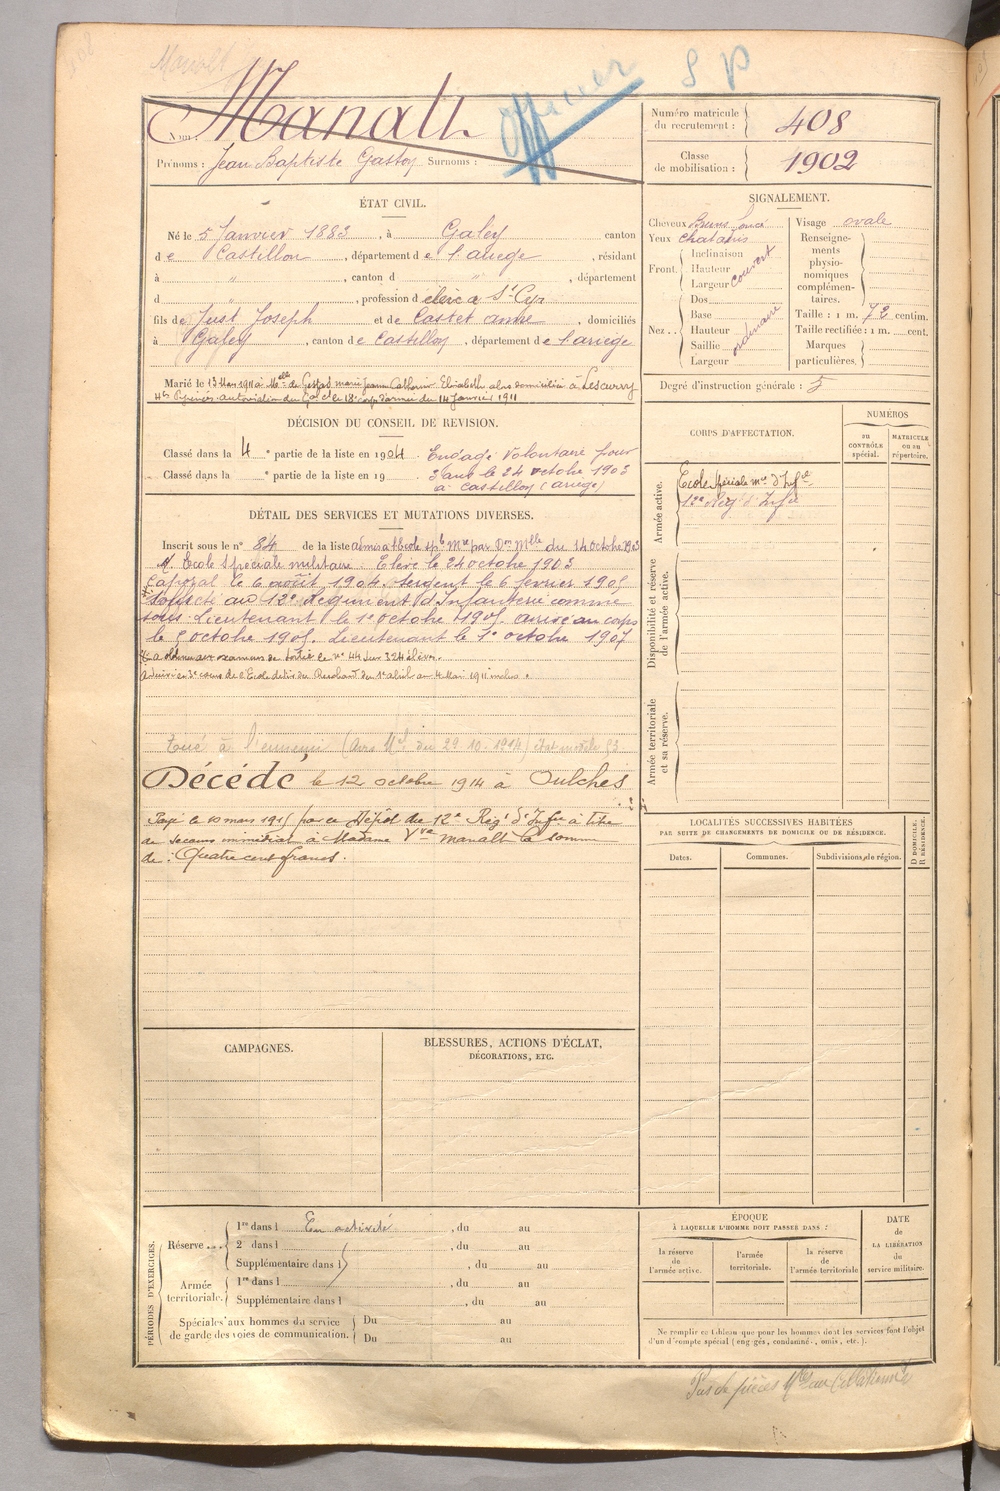 Manalt
Officier S P
Nom : Manalt
Prénoms : Jean Baptiste Gaston Surnoms :
Numéro matricule du recrutement : 408
Classe de mobilisation : 1902
ÉTAT CIVIL.
Né le 5 Janvier 1883, à Galey canton
de Castillon, département de l'ariege, résidant
à " , canton d " , département
d , profession d élève à St Cyr
fils de Just Joseph et de Castet anne, domiciliés
à Galey, canton de Castillon, département de l'ariège
Marié le 13 Mars 1911 à Melle de Gestas marie Jeanne Catherine Elisabeth alors domiciliée à Lescurry
Htes Pyrénées autorisation du Gal Ct le 18e corps d'armée du 14 Janvier 1911
DÉCISION DU CONSEIL DE REVISION.
Classé dans la 4 e partie de la liste en 1904 Engagé Volontaire pour
Classé dans la e partie de la liste en 19 3 ans le 24 octobre 1903
à Castillon (ariège)
DÉTAIL DES SERVICES ET MUTATIONS DIVERSES.
Inscrit sous le n° 84 de la liste admis à l'Ecole sple Mre par Don Mlle du 14 octobre 1903
A l' Ecole Spéciale militaire. Elève le 24 octobre 1903
Caporal le 6 août 1904. Sergent le 6 fevrier 1905
au 12e Régiment d'Infanterie comme
sous-Lieutenant le 1er octobre 1905. arrivé au corps
le octobre 1905. Lieutenant le 1er octobre 1907
a obtenu aux examens de sortie le n° 44 sur 324 élèves.
3e cours de l'Ecole de tir du Ruchard du 1er abril au 4 Mai 1911 inclus.
Tué à l'ennemi (Avis Mel du 29.10.1914) état modèle
Décédé le 12 octobre 1914 à Oulches
Payé le 10 mars 1915 par le Dépôt du 12e Régt d'Infrie à titre
de secours immédiat à Madame Vve Manalt la somme
de : Quatre cent francs.
CAMPAGNES.
BLESSURES, ACTIONS D'ÉCLAT,
DÉCORATIONS, ETC.
PÉRIODES D'EXERCICES.
Réserve ...
1re dans l En activité , du au
2 dans l , du au
Supplémentaire dans l , du au
Armée territoriale.
1re dans l , du au
Supplémentaire dans l , du au
Spéciales aux hommes du service
de garde des voies de communication.
Du au
Du au
SIGNALEMENT.
Cheveux Bruns foncé
Yeux chatains
Front.
Inclinaison
Hauteur couvert
Largeur
Nez ..
Dos
Base
Hauteur ordinaire
Saillie
Largeur
Visage ovale
Renseigne-
ments
physio-
nomiques
complémen-
taires.
Taille : 1 m. 72 centim.
Taille rectifiée : 1 m. cent.
Marques
particulières.
Degré d'instruction générale : 5
CORPS D'AFFECTATION.
NUMÉROS
au
CONTRÔLE
spécial.
MATRICULE
ou au
répertoire.
Armée active.
Ecole Spéciale mre d'Infie
12e Rég d'Infie
Disponibilité et réserve
de l'armée active.
Armée territoriale
et sa réserve.
LOCALITÉS SUCCESSIVES HABITÉES
PAR SUITE DE CHANGEMENTS DE DOMICILE OU DE RÉSIDENCE.
Dates.
Communes.
Subdivisions de région.
D DOMICILE.
R RÉSIDENCE.
ÉPOQUE
À LAQUELLE L'HOMME DOIT PASSER DANS :
la réserve
de
l'armée active.
l'armée
territoriale.
la réserve
de
l'armée territoriale
DATE
de
LA LIBÉRATION
du
service militaire.
Ne remplir ce tableau que pour les hommes dont les services font l'objet
d'un décompte spécial (engagés, condamné , omis, etc.).
Pas de pièces